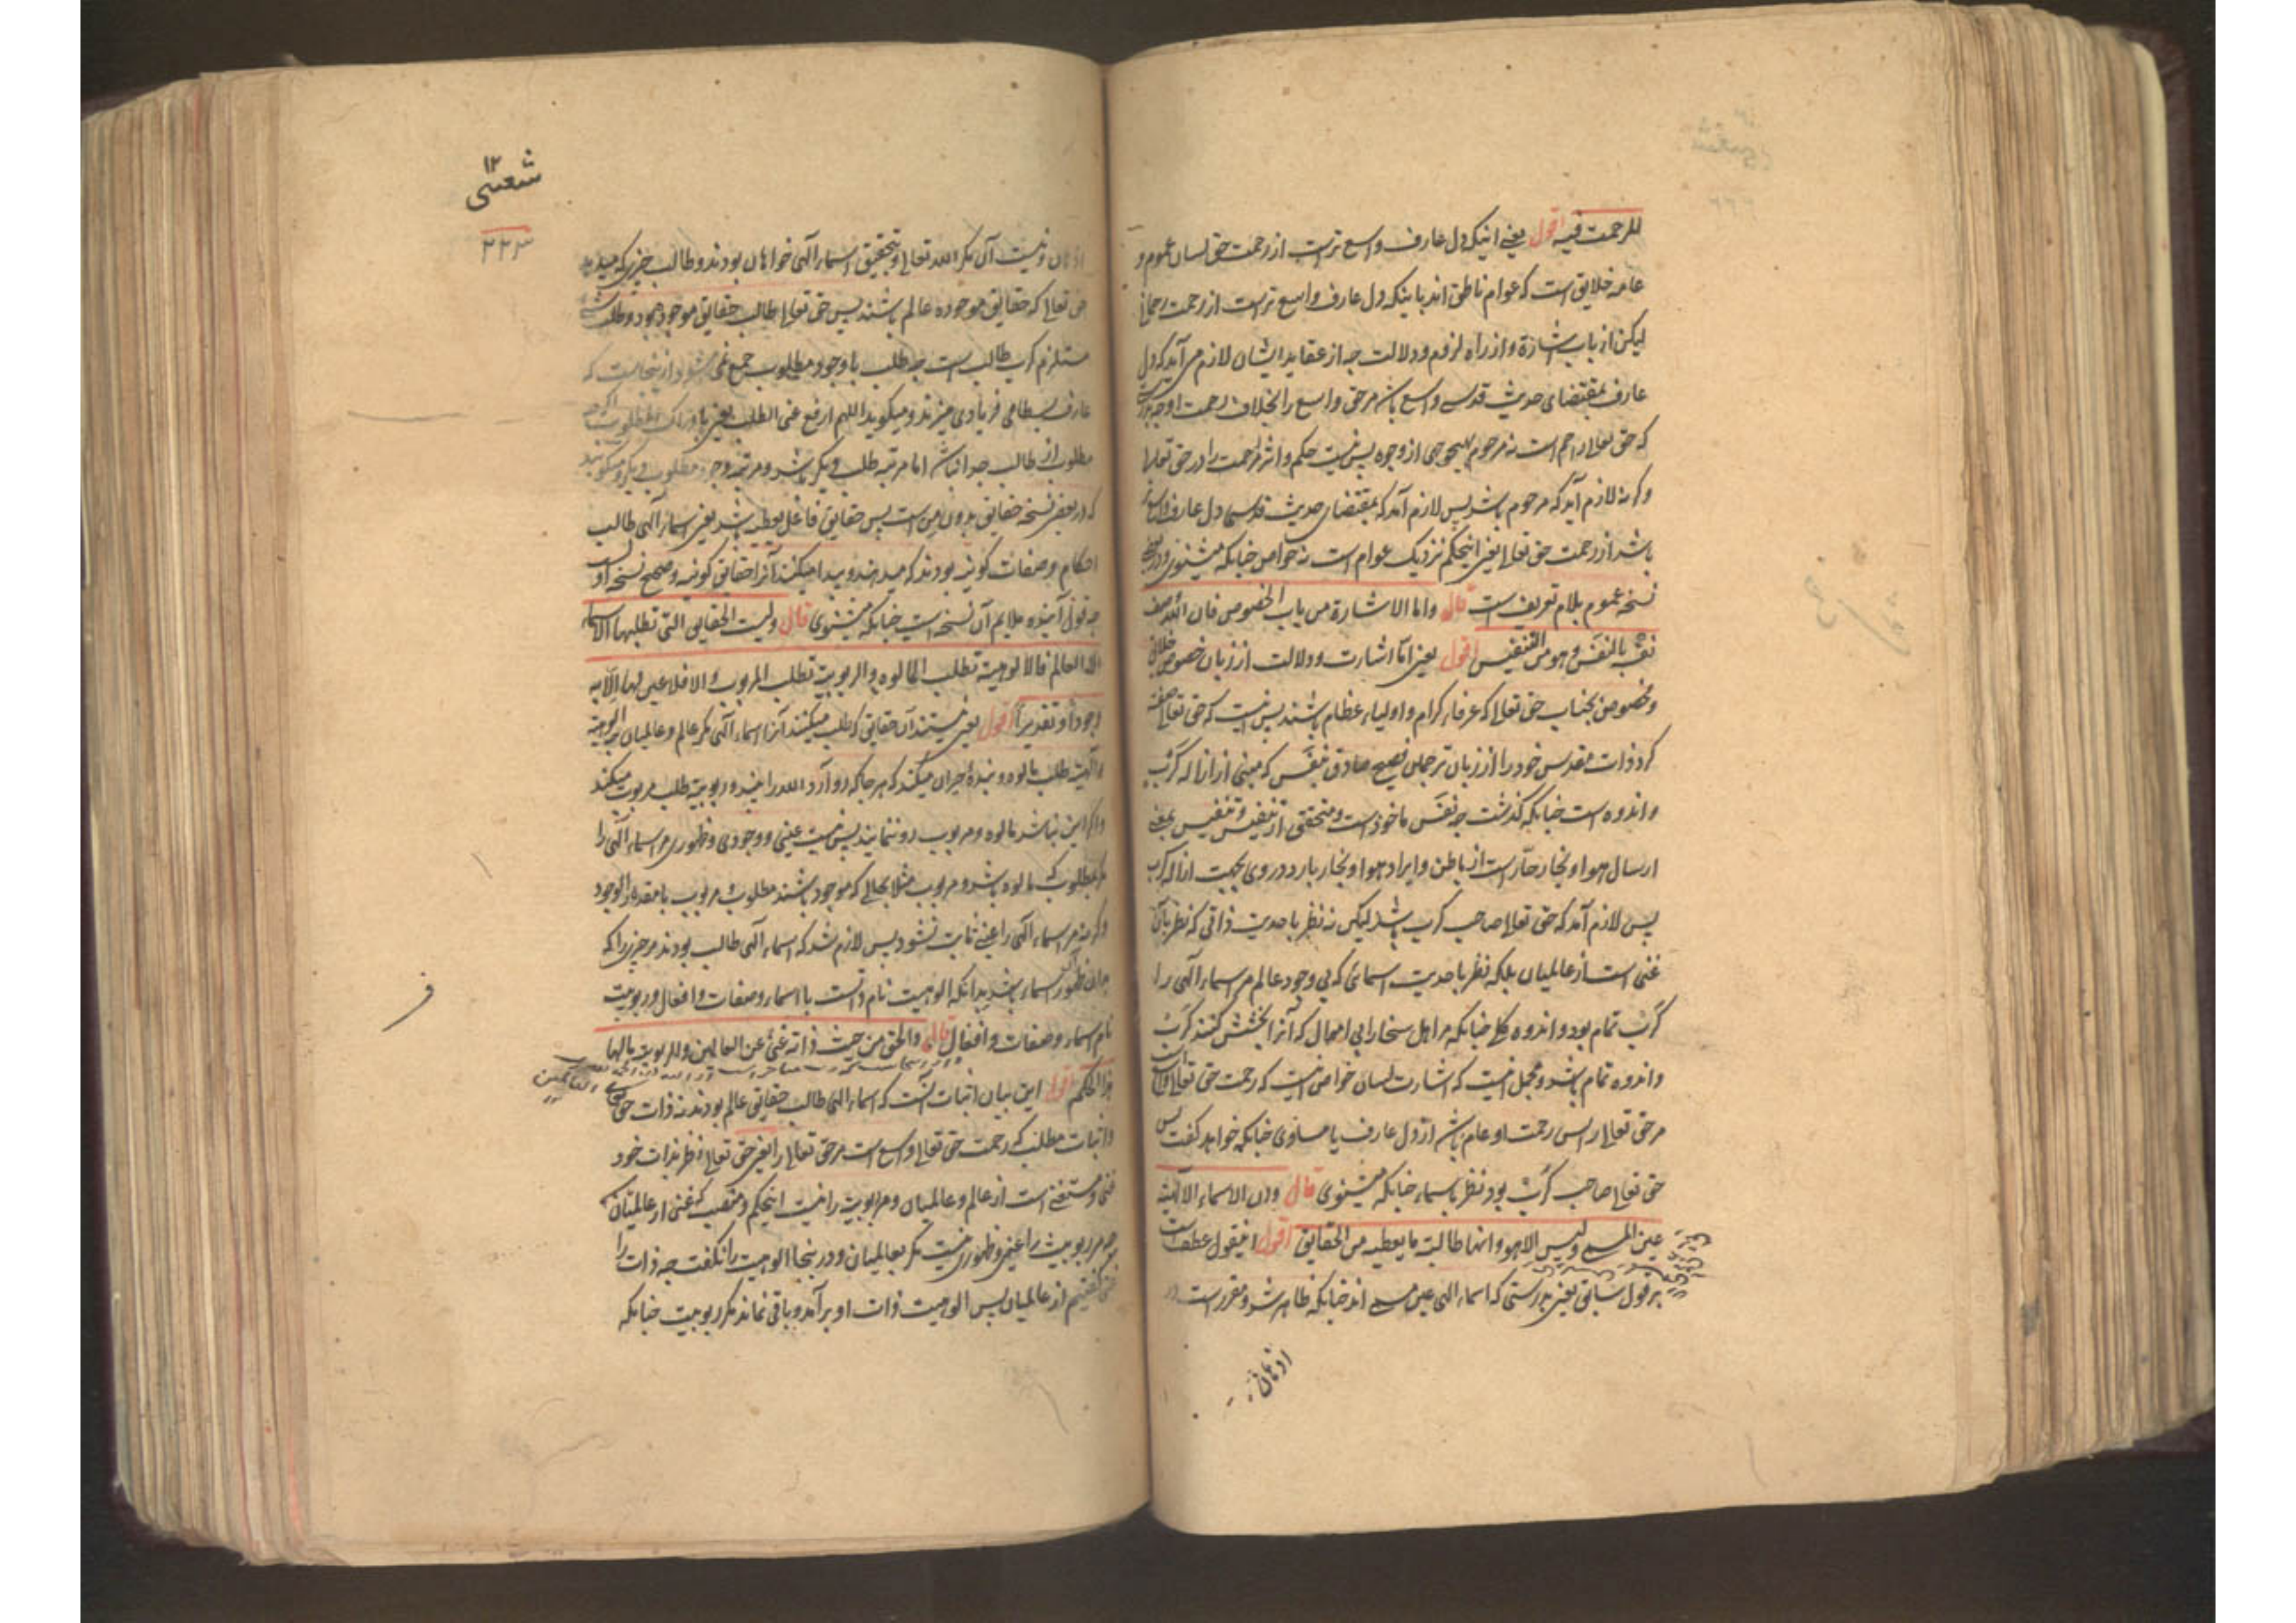 للرحمت فیه اقول یعنی اینکه دل عارف واسع ترست از رحمت حق لسان عموم و
عامه خلایق است که عوام ناطق اند باینکه دل عارف واسع ترست از رحمت رحمانی
لیکن از باب اشارة و از راه لزوم و دلالت چه از عقاید ایشان لازم می آید که دل
عارف بمقتضای حدیث قدسی واسع باشد مر حق واسع را بخلاف رحمت او چه
که حق تعالی راحم است نه مرحوم بهیچ وجهی از وجوه پس نیست حکم و اثر رحمت را در حق تعالی
و گرنه لازم آید که مرحوم باشد پس لازم آمد که بمقتضای حدیث قدسی دل عارف واسع تر
باشد از رحمت حق تعالی یعنی اینحکم نزدیک عوام است نه خواص چنانکه میشنوی و در بعضی
نسخه عموم بلام تعریف است قال واما الاشارة من باب الخصوص فان الله وصف
نفسه بالنفس وهو من التنفیس اقول یعنی اما اشارت و دلالت از زبان خصوص خلایق
و خصوص بجناب حق تعالی که عرفاء کرام و اولیاء عظام باشند پس نیست که حق تعالی صفت
کرد ذات مقدس خود را از زبان ترجمان فصیح صادق بنفس که مبنی از ازاله کرب
و اندوه است چنانکه گذشت چه نفس ماخوذ است و متحقق از تنفیس و تنفیس بمعنی
ارسال هوا و بخار حار است از باطن و ایراد هوا و بخار بارد در وی بجهت ازاله کرب
پس لازم آمد که حق تعالی صاحب کرب باشد لیکن نه نظر باحدیت ذاتی که نظر بآن
غنی است از عالمیان بلکه نظر باحدیت اسمائی که بی وجود عالم مر اسماء الهی را
کرب تمام بود و اندوه کلی چنانکه مر اهل سخا را بی اموال که آنرا بخشش کنند کرب
و اندوه تمام باشد و مجمل اینست که اشارت لسان خواص اینست که رحمت حق تعالی واسع است
مر حق تعالی را پس رحمت او عام باشد از دل عارف یا مساوی چنانکه خواهد گفت پس
حق تعالی صاحب کرب بود نظر باسماء چنانکه میشنوی قال وان الاسماء الالهیة
عین المسمی ولیس الا هو وانها طالبة ما یعطیه من الحقایق اقول انیقول عطف است
بر قول سابق یعنی بدرستی که اسماء الهی عین مسمی اند چنانکه ظاهر شد و مقرر است
۱۲
۲۲۳
و نیست آن مگر الله تعالی و بتحقیق اسماء الهی خواهان بودند و طالب چیزی که میدهد
حق تعالی که حقایق موجوده عالم باشند پس حق تعالی طالب حقایق موجود بود و طلب
مستلزم کرب طالب است چه طلب با وجود مطلوب جمع نمی شود و از ینجاست که
عارف بسطامی فریادی میزند و میگوید اللهم ارفع عنی الطلب یعنی
مطلوب از طالب جدا نباشد اما مرتبه طلب دیگر باشد و مرتبه وجود مطلوب دیگر و میگویند
که در بعض نسخه حقایق بدون من است پس حقایق فاعل یعطیه باشد یعنی اسماء الهی طالب
احکام و صفات کونیه بودند که میدهند و پیدا میکنند آنرا حقایق کونیه و صحیح نسخه اولست
چه قول آینده ملایم آن نسخه است چنانکه میشنوی قال ولیست الحقایق التی تطلبها الاسماء
الا العالم فالالوهیة تطلب المالوه والربوبیة تطلب المربوب والا فلا عین لها الا به
وجودا وتقدیرا اقول یعنی نیستند آن حقایق که طلب میکنند آنرا اسماء الهی مگر عالم و عالمیان پس الوهیة
و الهیت طلب مالوه و بنده حیران میکند که هر جا که رو آرد الله را بیند و ربوبیة طلب مربوب میکند
و اگر این نباشد مالوه و مربوب رو ننمایند پس نیست عینی و وجودی و ظهوری مر اسماء الهی را
مگر بمطلوب که مالوه باشد و مربوب مثلا بحالی که موجود باشند مطلوب و مربوب یا مقدر الوجود
و گرنه مر اسماء الهی را عینی ثابت نشود پس لازم شد که اسماء الهی طالب بودند مر چیزی را که
بدان ظهور اسماء باشد بدانکه الوهیت نام ذاتست با اسماء و صفات و افعال و ربوبیت
نام اسماء و صفات و افعال قال والحق من حیث ذاته غنی عن العالمین والربوبیة ما لها
هذا الحکم اقول این بیان اثبات آنست که اسماء الهی طالب حقایق عالم بودند نه ذات حق
و اثبات مطلب که رحمت حق تعالی واسع است مر حق تعالی را یعنی حق تعالی نظر بذات خود
غنی و مستغنی است از عالم و عالمیان و مر ربوبیة را نیست اینحکم و منصب که غنی از عالمیان
چه مر ربوبیت را عینی و ظهوری نیست مگر بعالمیان و در ینجا الوهیت را نگفت چه ذات را
غنی گفتیم از عالمیان پس الوهیت ذات او برآمد و باقی نماند مگر ربوبیت چنانکه